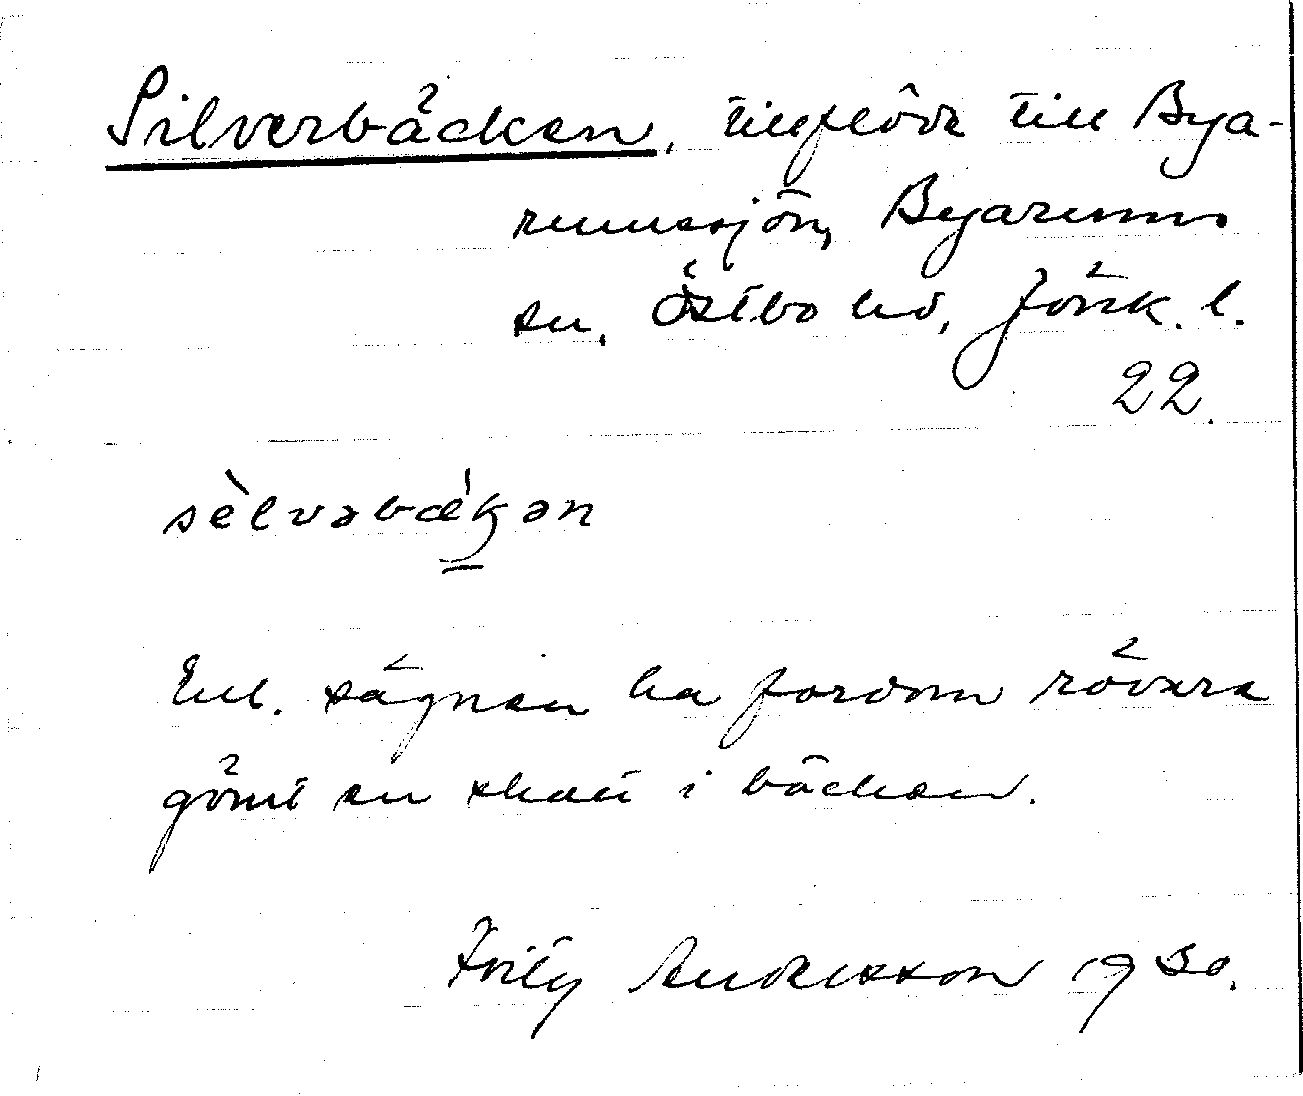 Silverbäcken, tillflöde till Bya-
rumssjön, Byarums
sn, Östbo hd, Jönk. l.
22.
sèlvəbǽkən
Enl. sägnen ha fordom rövare
gömt en skatt i bäcken.
Andersson 1930.